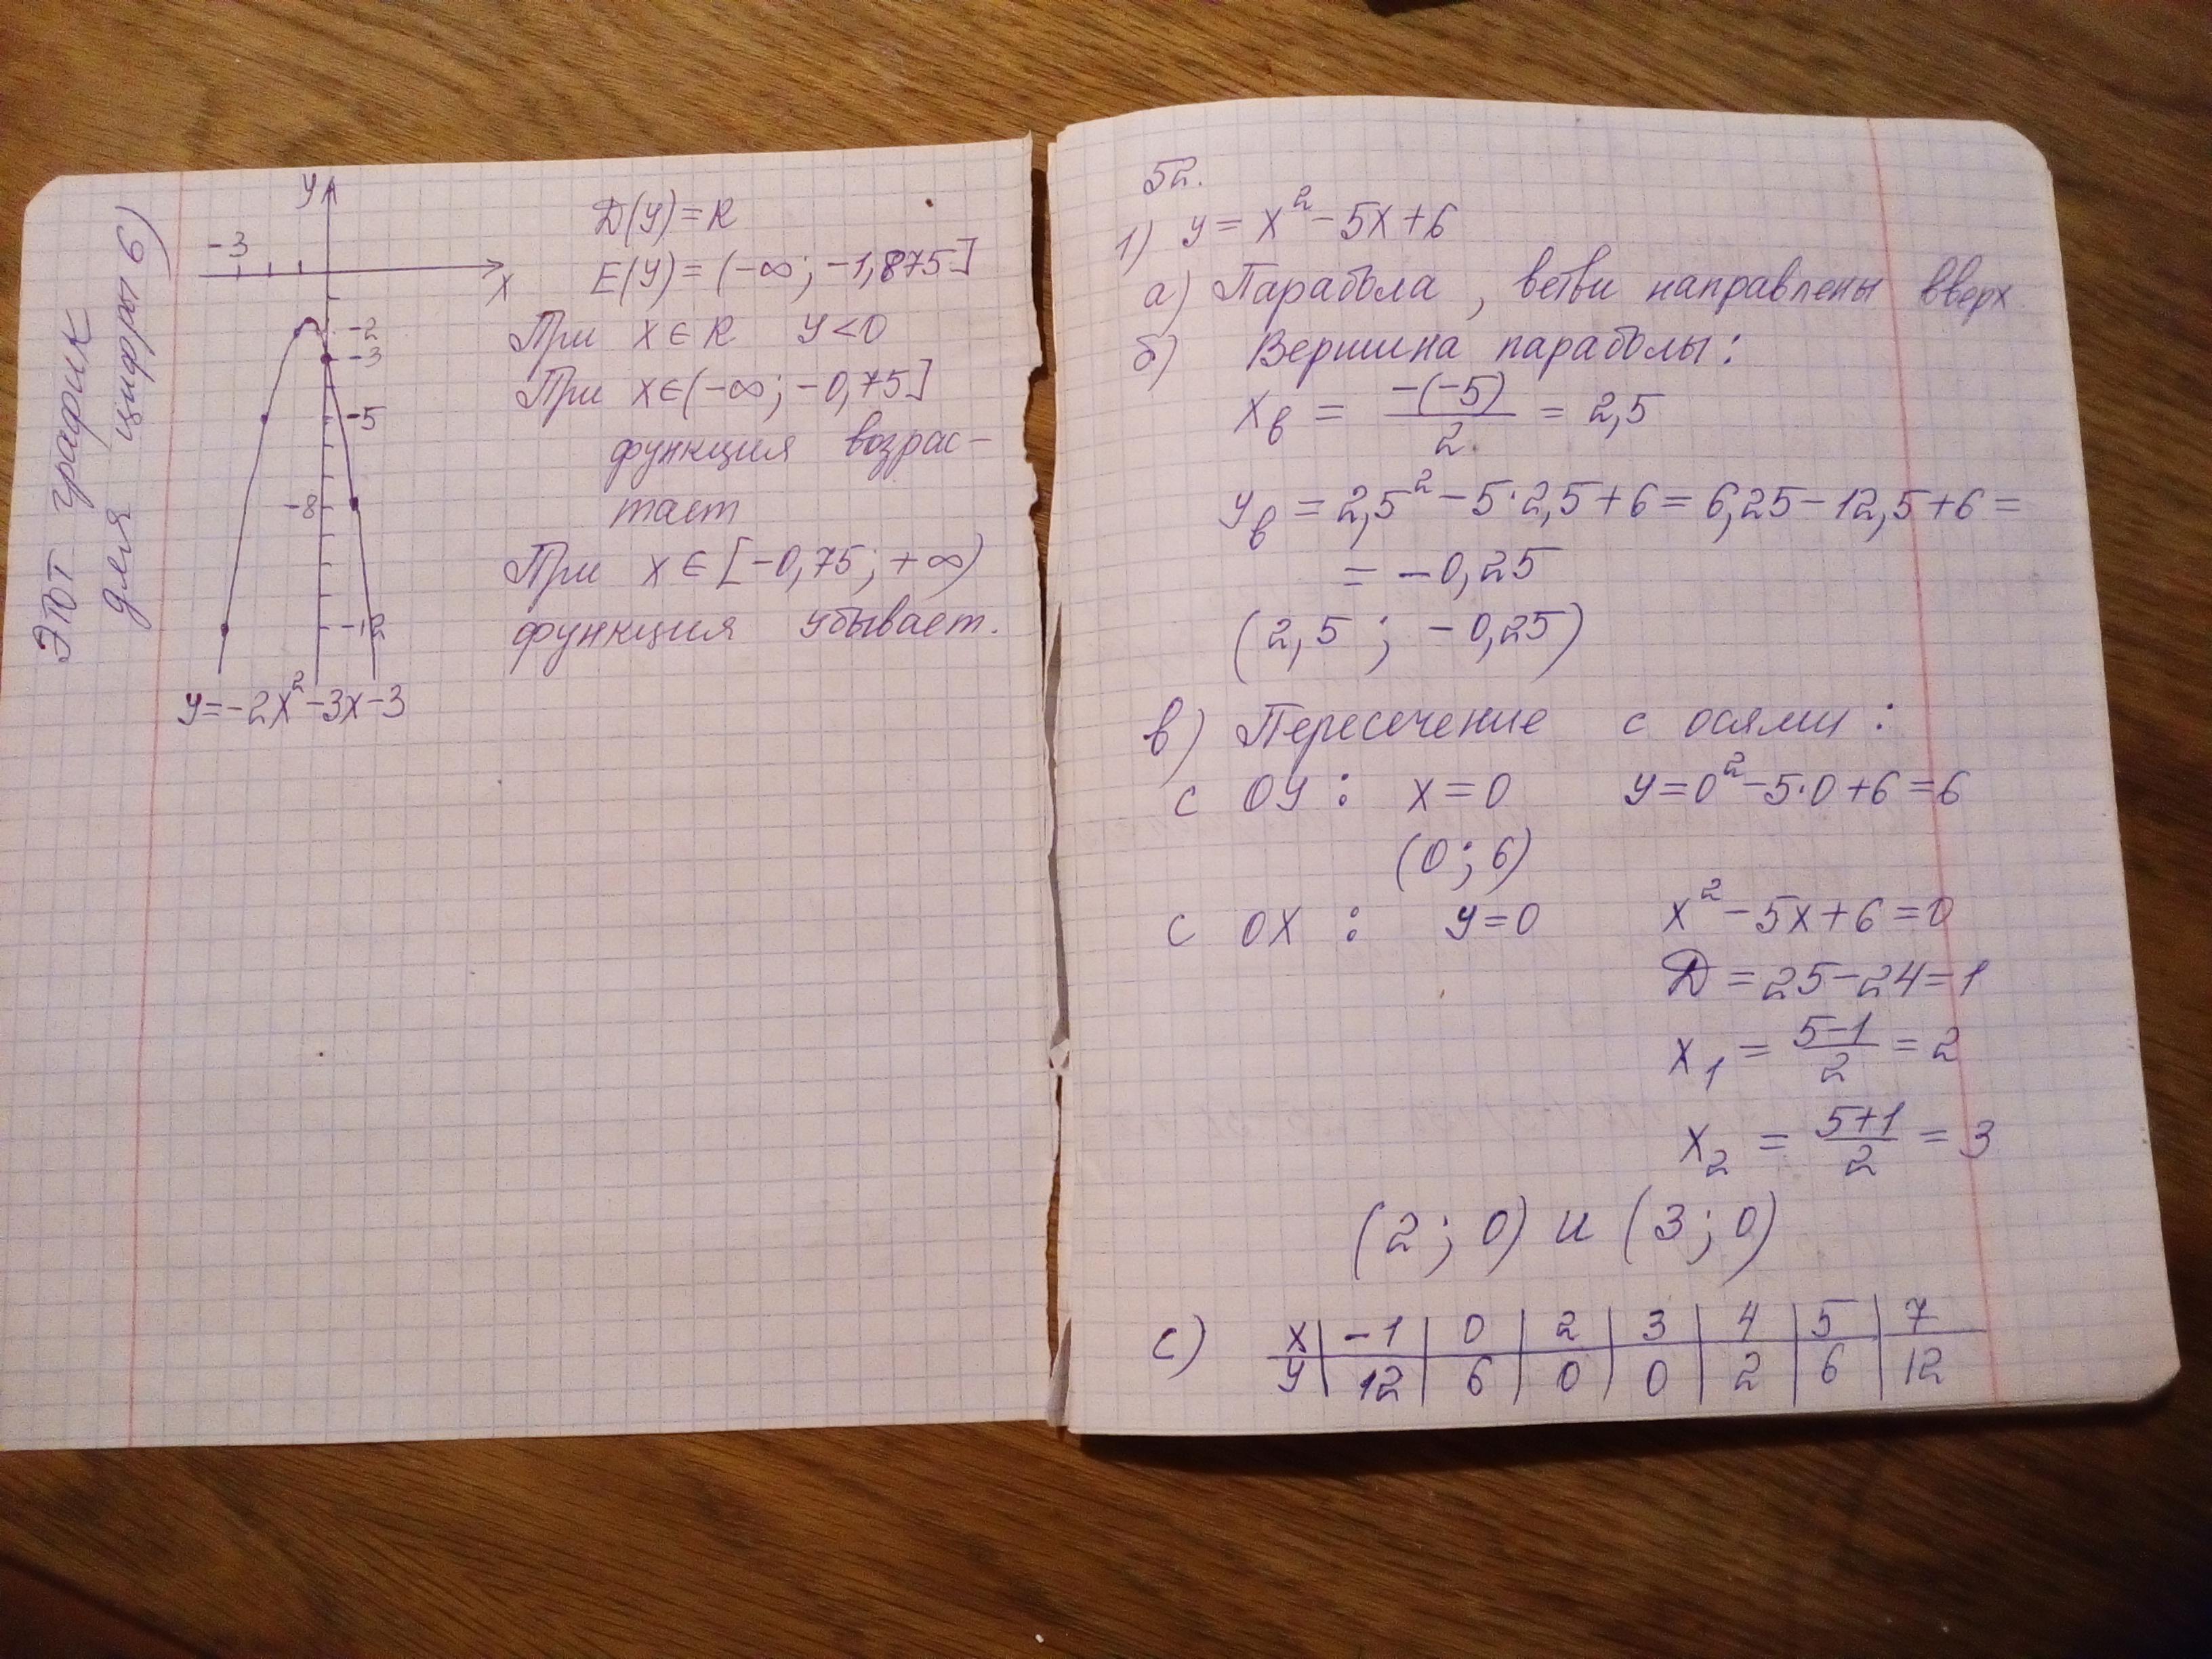 Этот график
для цифры 6)
y
-3
x
-2
-3
-5
-8
-12
y=-2x²-3x-3
D(y)=R
E(y)=(-∞; -1,875]
При x∈R y<0
При x∈(-∞; -0,75]
функция возрас-
тает
При x∈[-0,75; +∞)
функция убывает.
52.
1) y = x²-5x+6
а) Парабола, ветви направлены вверх
б) Вершина параболы:
x_в = -(-5)/2 = 2,5
y_в = 2,5²-5·2,5+6 = 6,25-12,5+6 =
= -0,25
(2,5; -0,25)
в) Пересечение с осями:
с OY: x=0 y=0²-5·0+6=6
(0; 6)
с OX: y=0 x²-5x+6=0
D=25-24=1
x₁ = (5-1)/2 = 2
x₂ = (5+1)/2 = 3
(2; 0) и (3; 0)
с) x | -1 | 0 | 2 | 3 | 4 | 5 | 7
y | 12 | 6 | 0 | 0 | 2 | 6 | 12